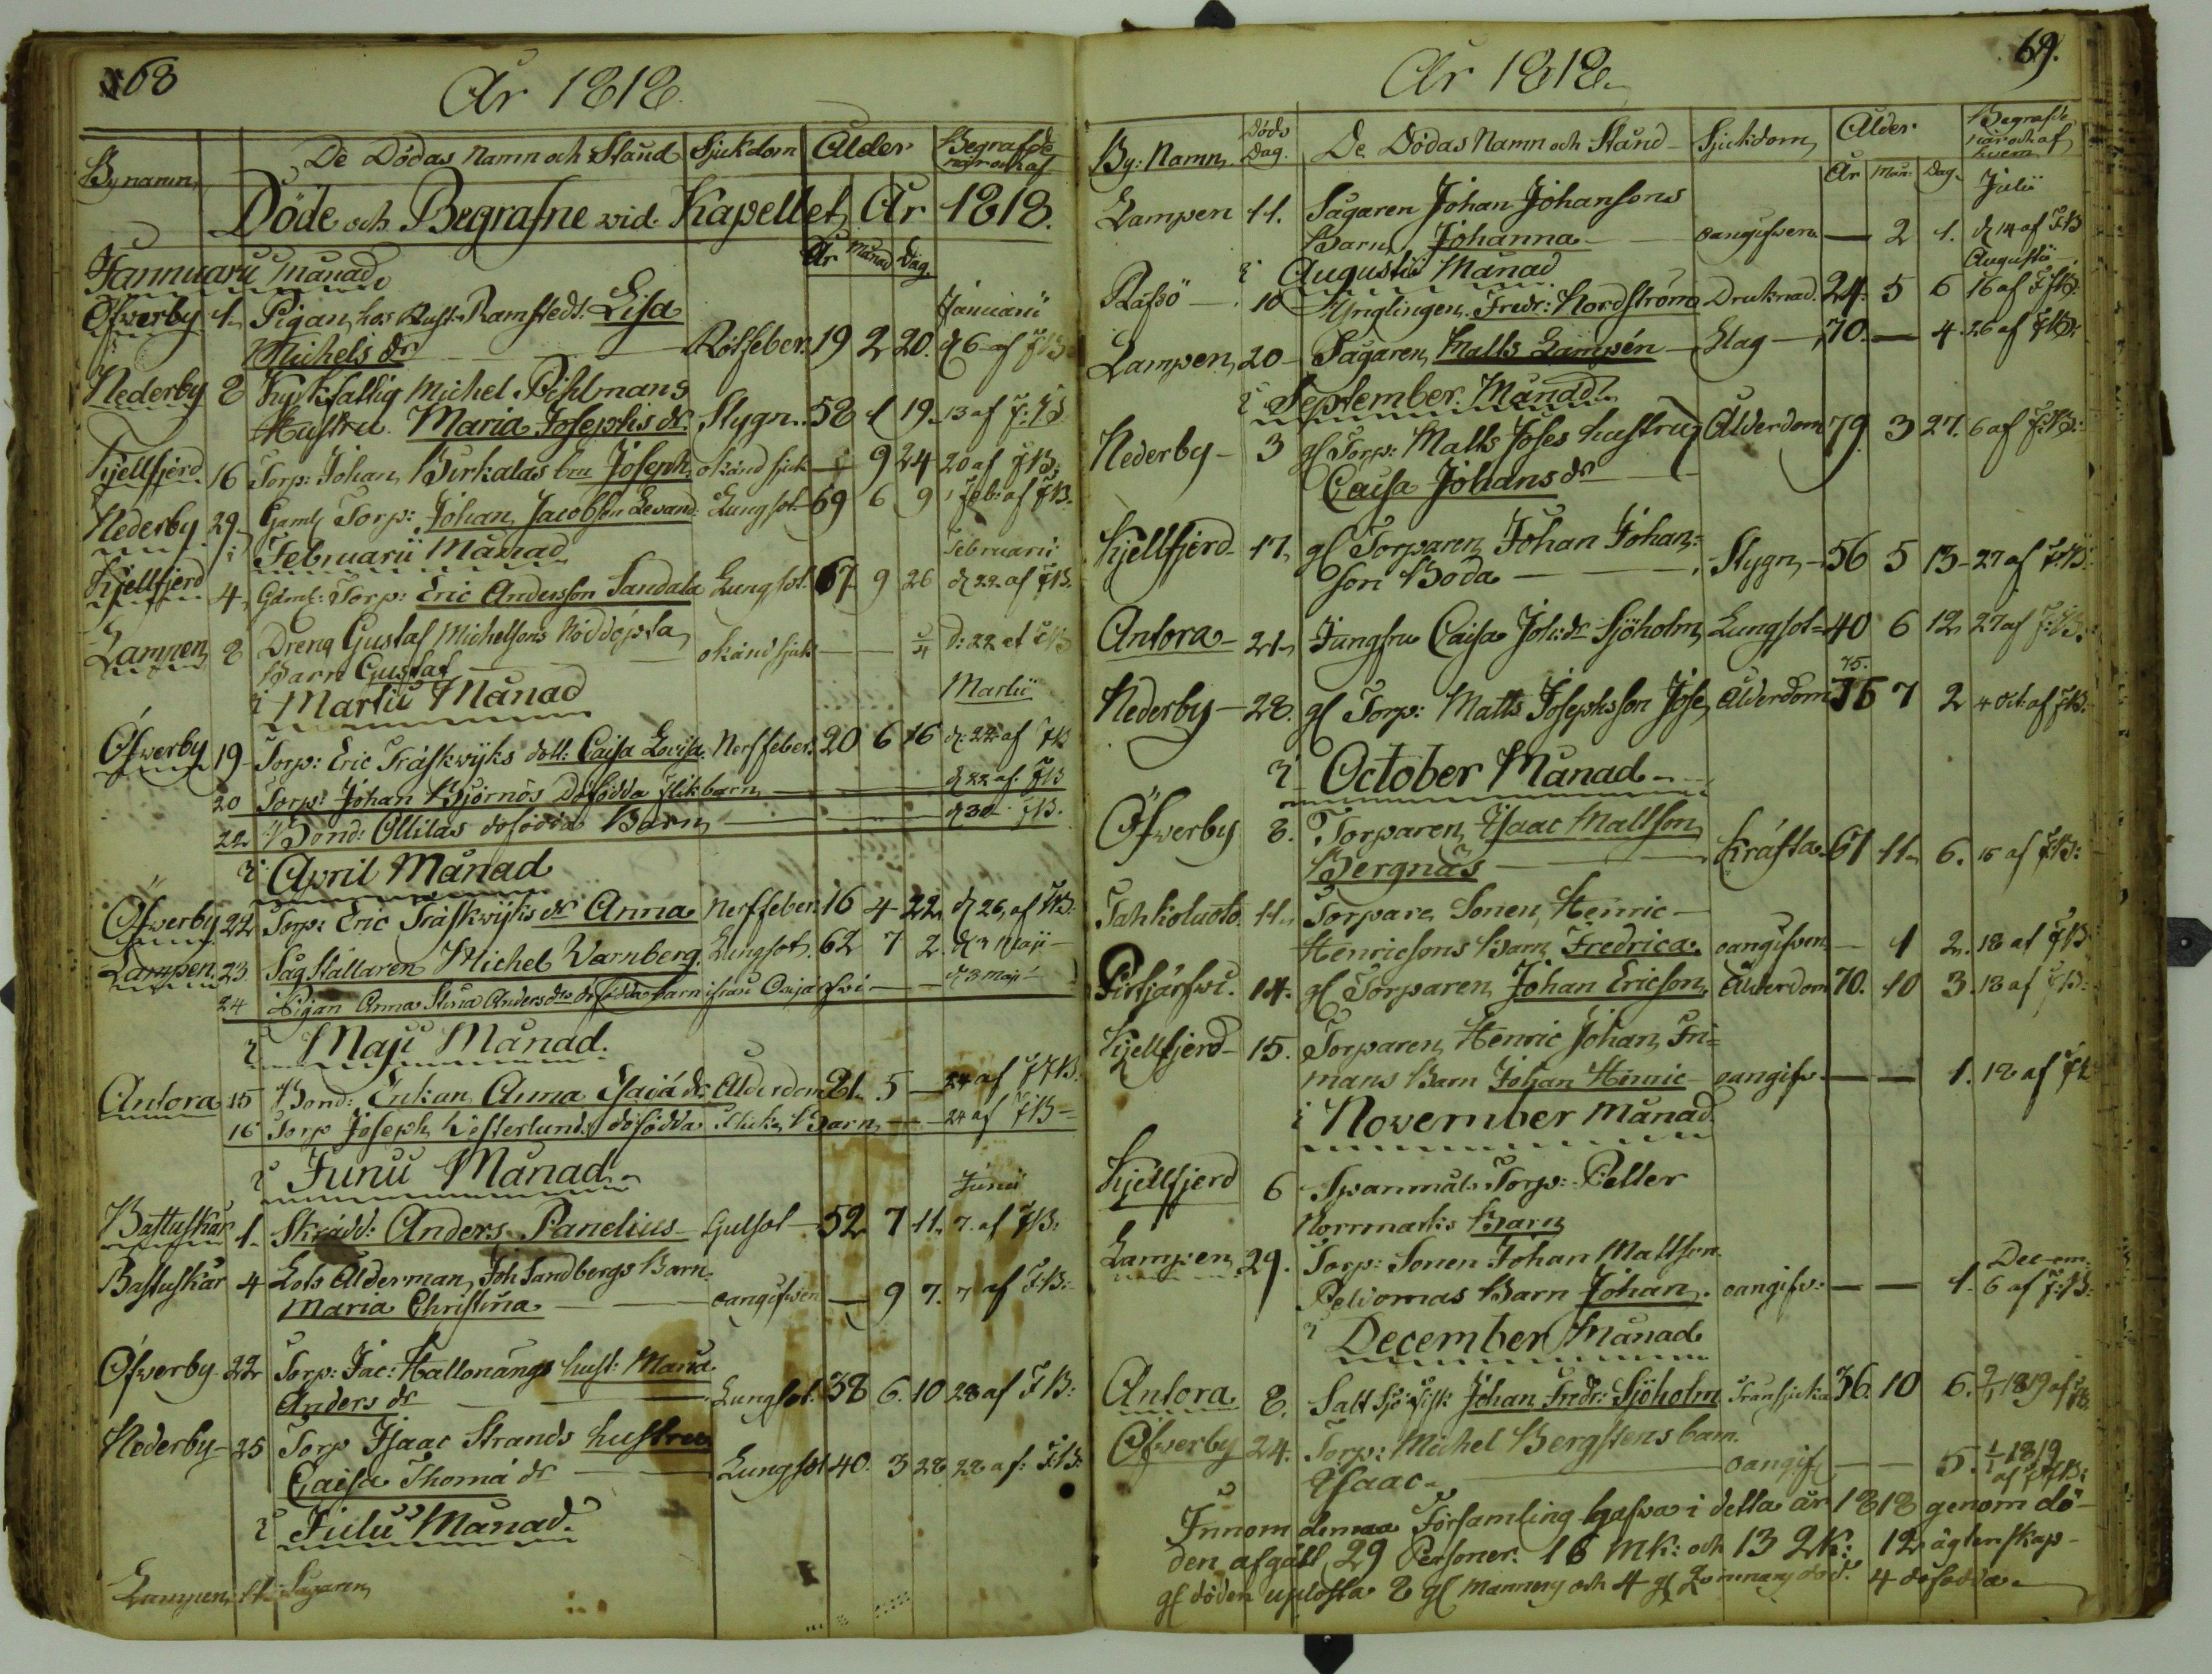 68
År 1818.
Bynamn De Dödas Namn och Stånd Sjukdom Ålder Begrafde när och af
Döde och Begrafne wid Kapellet År 1818.
År Månad Dag
Jannuarii Månad
Öfwerby 1 Pigan hos Rust. Ramstedt Lisa Januarii
Michels dr Rötfeber 19 2 20. d 6 af FB
Nederby 8 Michel Pihlmans
Hustru Maria Josephs dr. Stygn 58 1 19 13 af F:B
Kjellfjerd 16 Torp: Johan Burkalas barn Joseph okänd sjuk — 9 24 20 af FB.
Nederby 29 Gaml Torp: Johan Jacobsson Levand Lungsot 69 6 9 1 Feb: af FB.
i Februarii Månad Februarii
Kjellfjerd 4 Gaml: Torp: Eric Andersson Sandala Lungsot 67 9 26 d 22 af FB.
Lampen 8 Dreng Gustaf Michelsons Nöddöpta
Barn Gustaf okänd sjuk — — ¼ D: 22 af FB
i Martii Månad Martii
Öfwerby 19 Torp: Eric Träskwijks dott: Caisa Lovisa Nerffeber 20 6 16 d: 22 af FB
20 Torp: Johan Björnös Dödfödda flickbarn d 22 af FB
22 Bond: Ollilas dödfödda Barn d 30 FB.
i April Månad
Öfwerby 22 Torp: Eric Träskwijks dr Anna Nerffeber 16 4 22 d 26 af FB.
Lampen 23 Sågställaren Michel Warnberg Lungsot 62 7 2. d 3 Maji
24 Pigan Anna Stina Anders drs dödfödda barn ifrån d 3 Maji
i Maji Månad.
Antora 15 Bond: Enkan Anna Esaiä dr Ålderdom 81. 5 — 24 af FB.
16 Torp Joseph Westerlunds dödfödda Flicke Barn — — 24 af FB
i Junii Månad Junii
Bastuskär 1 Skrädd: Anders Panelius Gulsot 52 7 11 7. af FB:
Bastuskär 4 Lots Ålderman Joh Sandbergs Barn
Maria Christina oangifwen — 9 7. 7 af FB:
Öfwerby 22 Torp: Jac: Hallonängs hust: Maria
Anders dr Lungsot. 38 6. 10 28 af FB:
Nederby 25 Torp Isaac Strands hustru
Caisa Thomä dr Lungsot 40. 3 28 28 af: FB:
i Julii Månad.
Lampen 11 Sågaren
69.
År 1818.
By: Namn Döds Dag. De Dödas Namn och Stånd Sjukdom Ålder Begrafde när och af hwem
År Mån: Dag. Julii
Lampen 11. Sågaren Johan Johansons
Barn Johanna oangifwen — 2 1. d 14 af FB
i Augustii Månad Augustii
Räfsö 10 Ynglingen Fredr: Nordström Druknad. 24. 5 6 16 af FB:
Lampen 20 Sågaren Matts Lampén Slag 70. — 4. 26 af FB:
i September Månad
Nederby 3 gl Torp: Matts Joses hustru Ålderdom 79 3 27. 6 af FB:
Caisa Johans dr
Kjellfjerd 17 gl Torparen Johan Johan-
son Boda Stygn 56 5 13 27 af FB:
Antora 21 Jungfru Caisa Joh: dr Sjöholm Lungsot 40 6 12 27 af FB.
Nederby 28. gl Torp: Matts Josephsson Jose Ålderdom 75. 7 2 4 Oct: af FB:
i October Månad
Öfwerby 8. Torparen Isaac Mattson
Bergnäs Kräfta. 61 11 6. 15 af FB:
Tahkoluoto 11 Torpare Sonen Henric
Henricsons Barn Fredrica. oangifwen — 1 2. 18 af FB
Pirtjärfwi. 14. gl Torparen Johan Ericson Ålderdom 70. 10 3. 18 af FB:
Kjellfjerd 15. Torparen Henric Johan Fri-
mans Barn Johan Henric oangifw. — — 1. 18 af FB
i November Månad.
Kjellfjerd 6 Spanmåls Torp: Petter
Norrmarks Barn
Lampen 29. Torp: Sonen Johan Mattson Decem:
Peldomas Barn Johan. oangifw: — — 1. 6 af F:B:
i December Månad
Antora 8. Salt Sjö Fisk: Johan Fredr: Sjöholm Transjuka 36. 10 6. 1819 af FB
Öfwerby 24. Torp: Michel Bergstens barn.
Isaac oangif — — 5. 1/1 1819 af FB:
Innom denna Församling hafwa i detta år 1818 genom dö-
den afgått 29 Personer. 16 Mk: och 13 Qk: 12 ägtenskap
gl döden uplösta 8 gl mannens och 4 gl qwinnans död. 4 dödfödda.